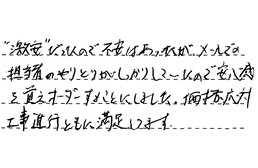 "激安"だったので不安はあったが、メールでの
担当者のやりとりがしっかりしていたので安心感
を覚えオーダーすることにしました。価格、応対
工事進行ともに満足してます。